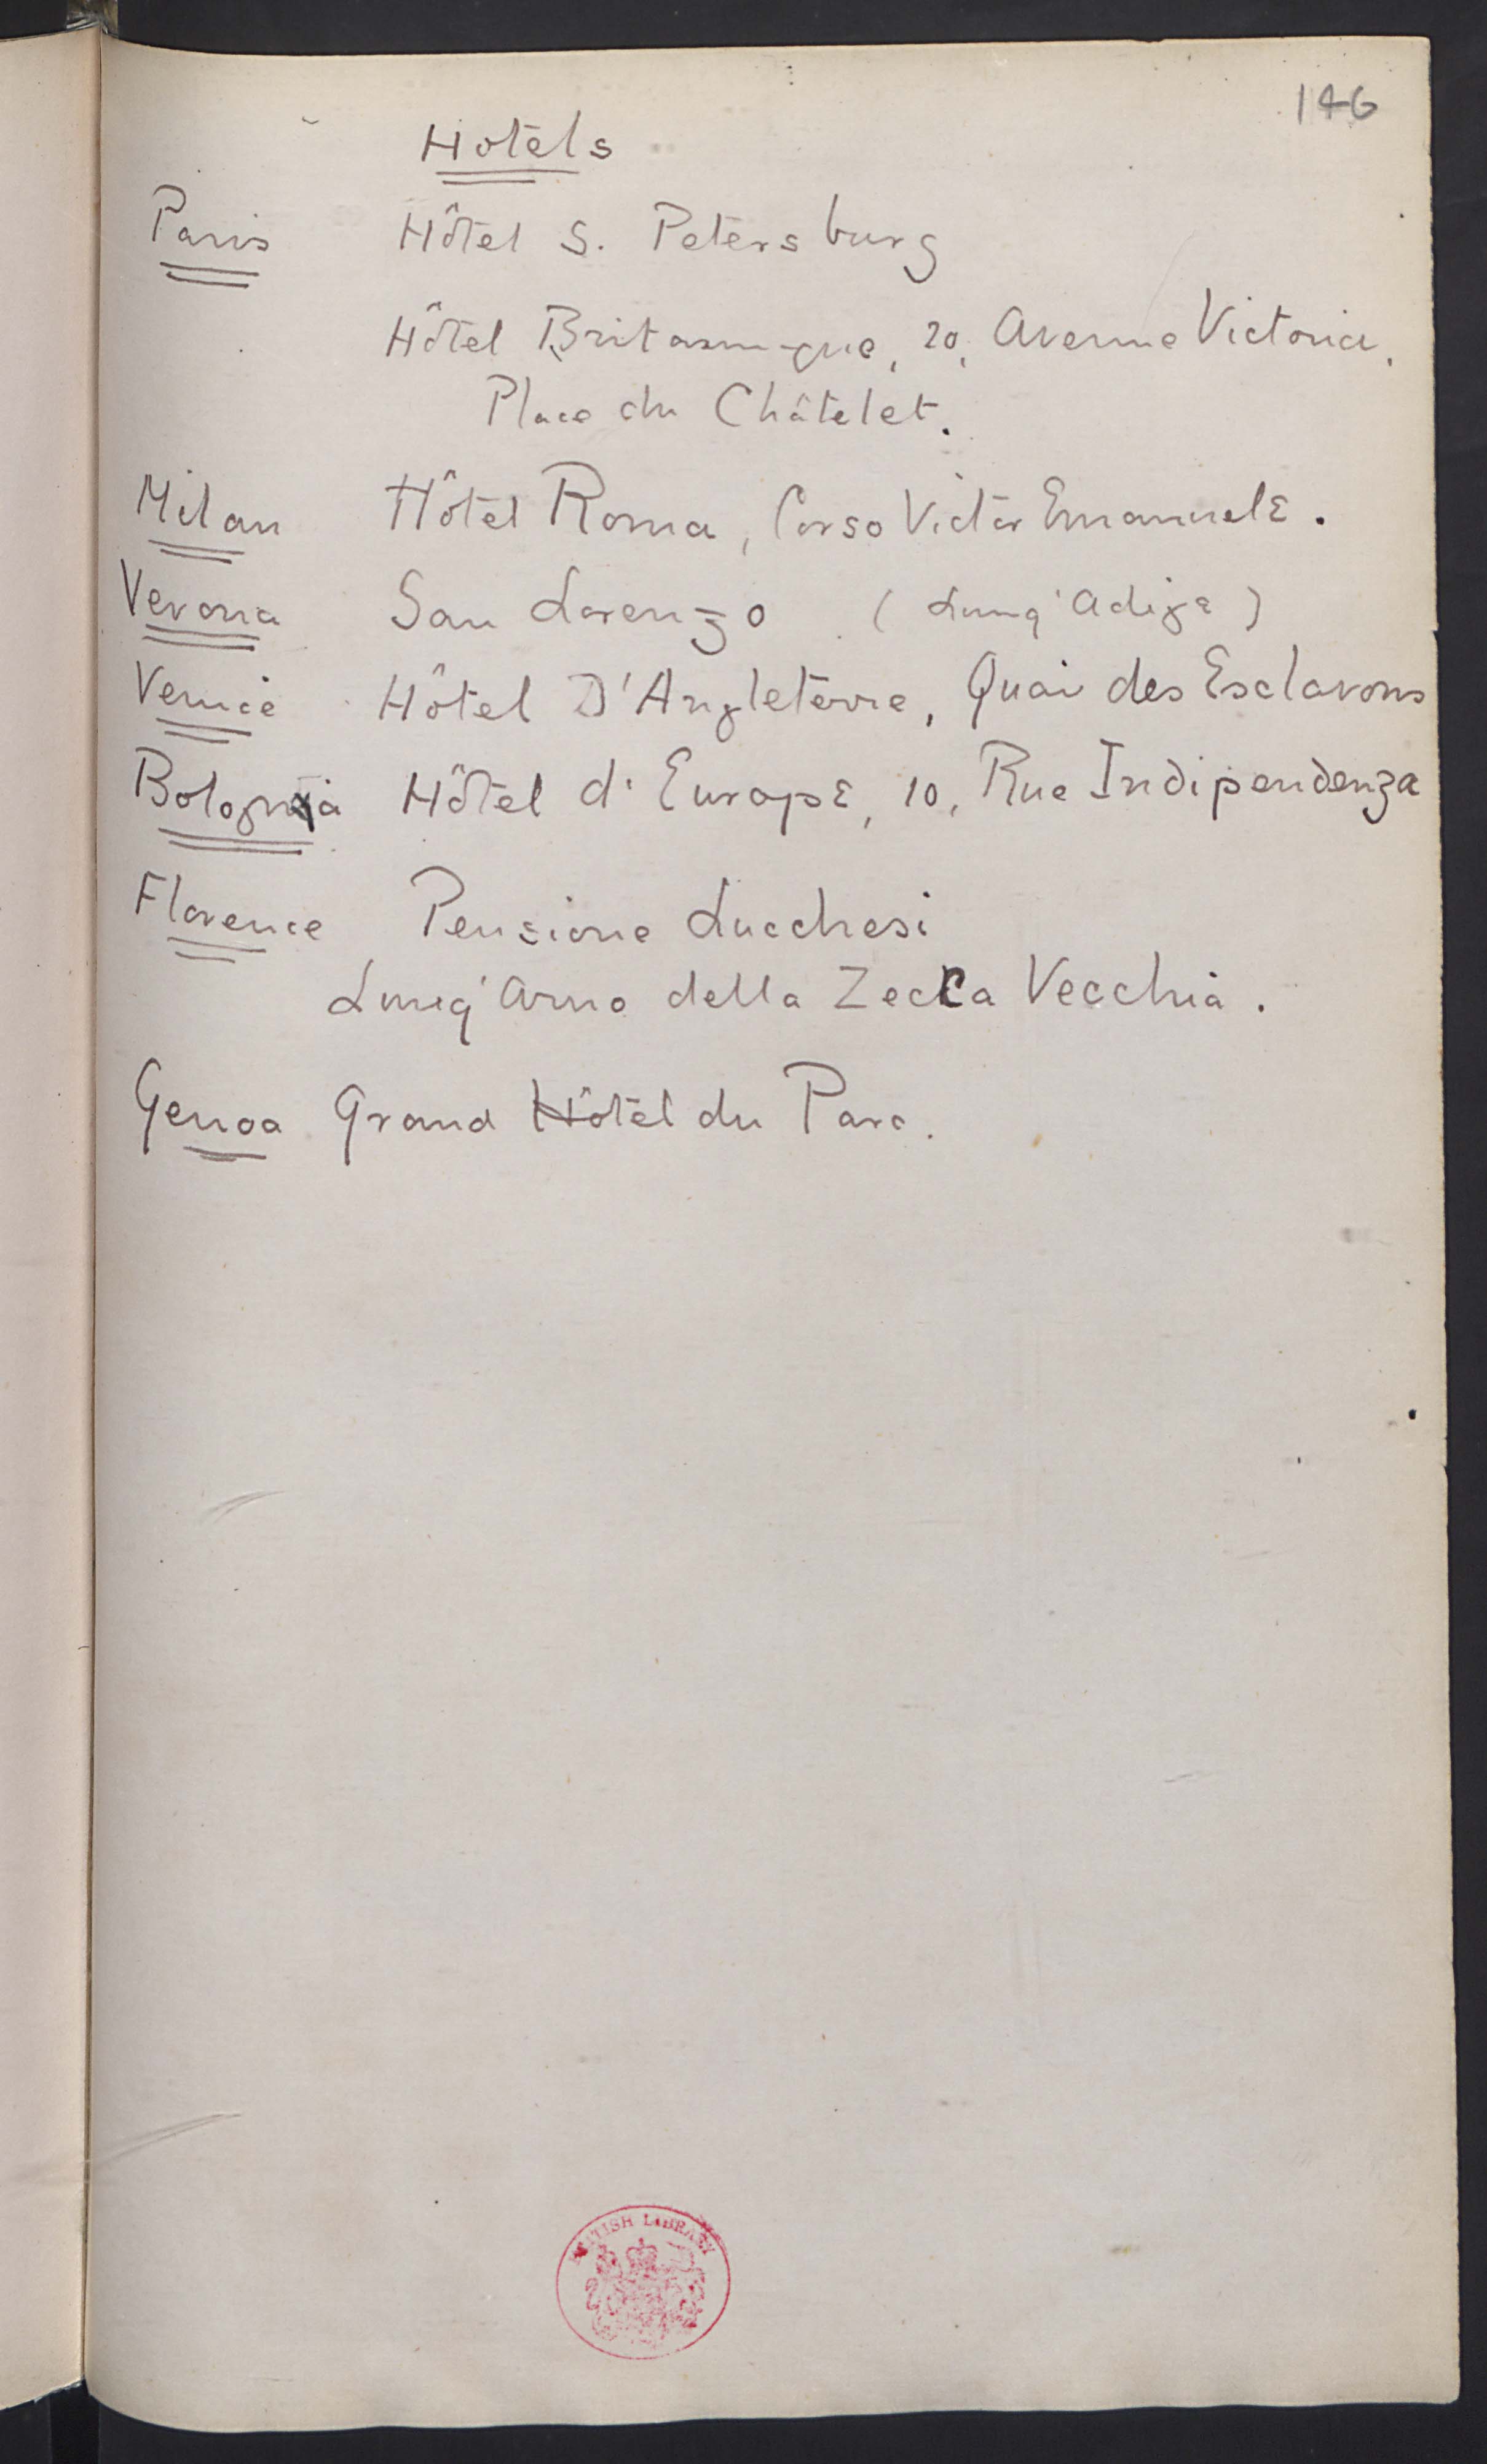 146
Hotels
Paris Hôtel S. Petersburg
Hôtel Britannique, 20, Avenue Victoria,
Place du Châtelet.
Milan Hôtel Roma, Corso Victor Emanuele.
Verona San Lorenzo (Lung'Adige)
Venice Hôtel D'Angleterre, Quai des Esclavons
Bologna Hôtel d'Europe, 10, Rue Indipendenza
Florence Pensione Lucchesi
Lung'Arno della Zecca Vecchia.
Genoa Grand Hôtel du Parc.
BRITISH LIBRARY